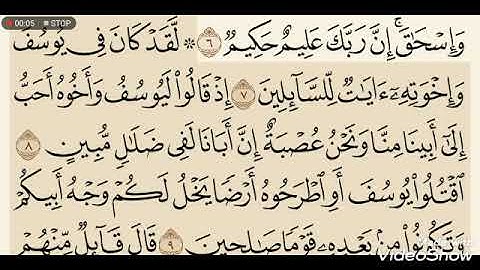 00:05 STOP
وَإِسْحَٰقَۚ إِنَّ رَبَّكَ عَلِيمٌ حَكِيمٌ ٦ ۞ لَّقَدْ كَانَ فِي يُوسُفَ
وَإِخْوَتِهِۦٓ ءَايَٰتٌ لِّلسَّآئِلِينَ ٧ إِذْ قَالُوا۟ لَيُوسُفُ وَأَخُوهُ أَحَبُّ
إِلَىٰٓ أَبِينَا مِنَّا وَنَحْنُ عُصْبَةٌ إِنَّ أَبَانَا لَفِي ضَلَٰلٍ مُّبِينٍ ٨
ٱقْتُلُوا۟ يُوسُفَ أَوِ ٱطْرَحُوهُ أَرْضًا يَخْلُ لَكُمْ وَجْهُ أَبِيكُمْ
وَتَكُونُوا۟ مِنۢ بَعْدِهِۦ قَوْمًا صَٰلِحِينَ ٩ قَالَ قَآئِلٌ مِّنْهُمْ
VideoShow